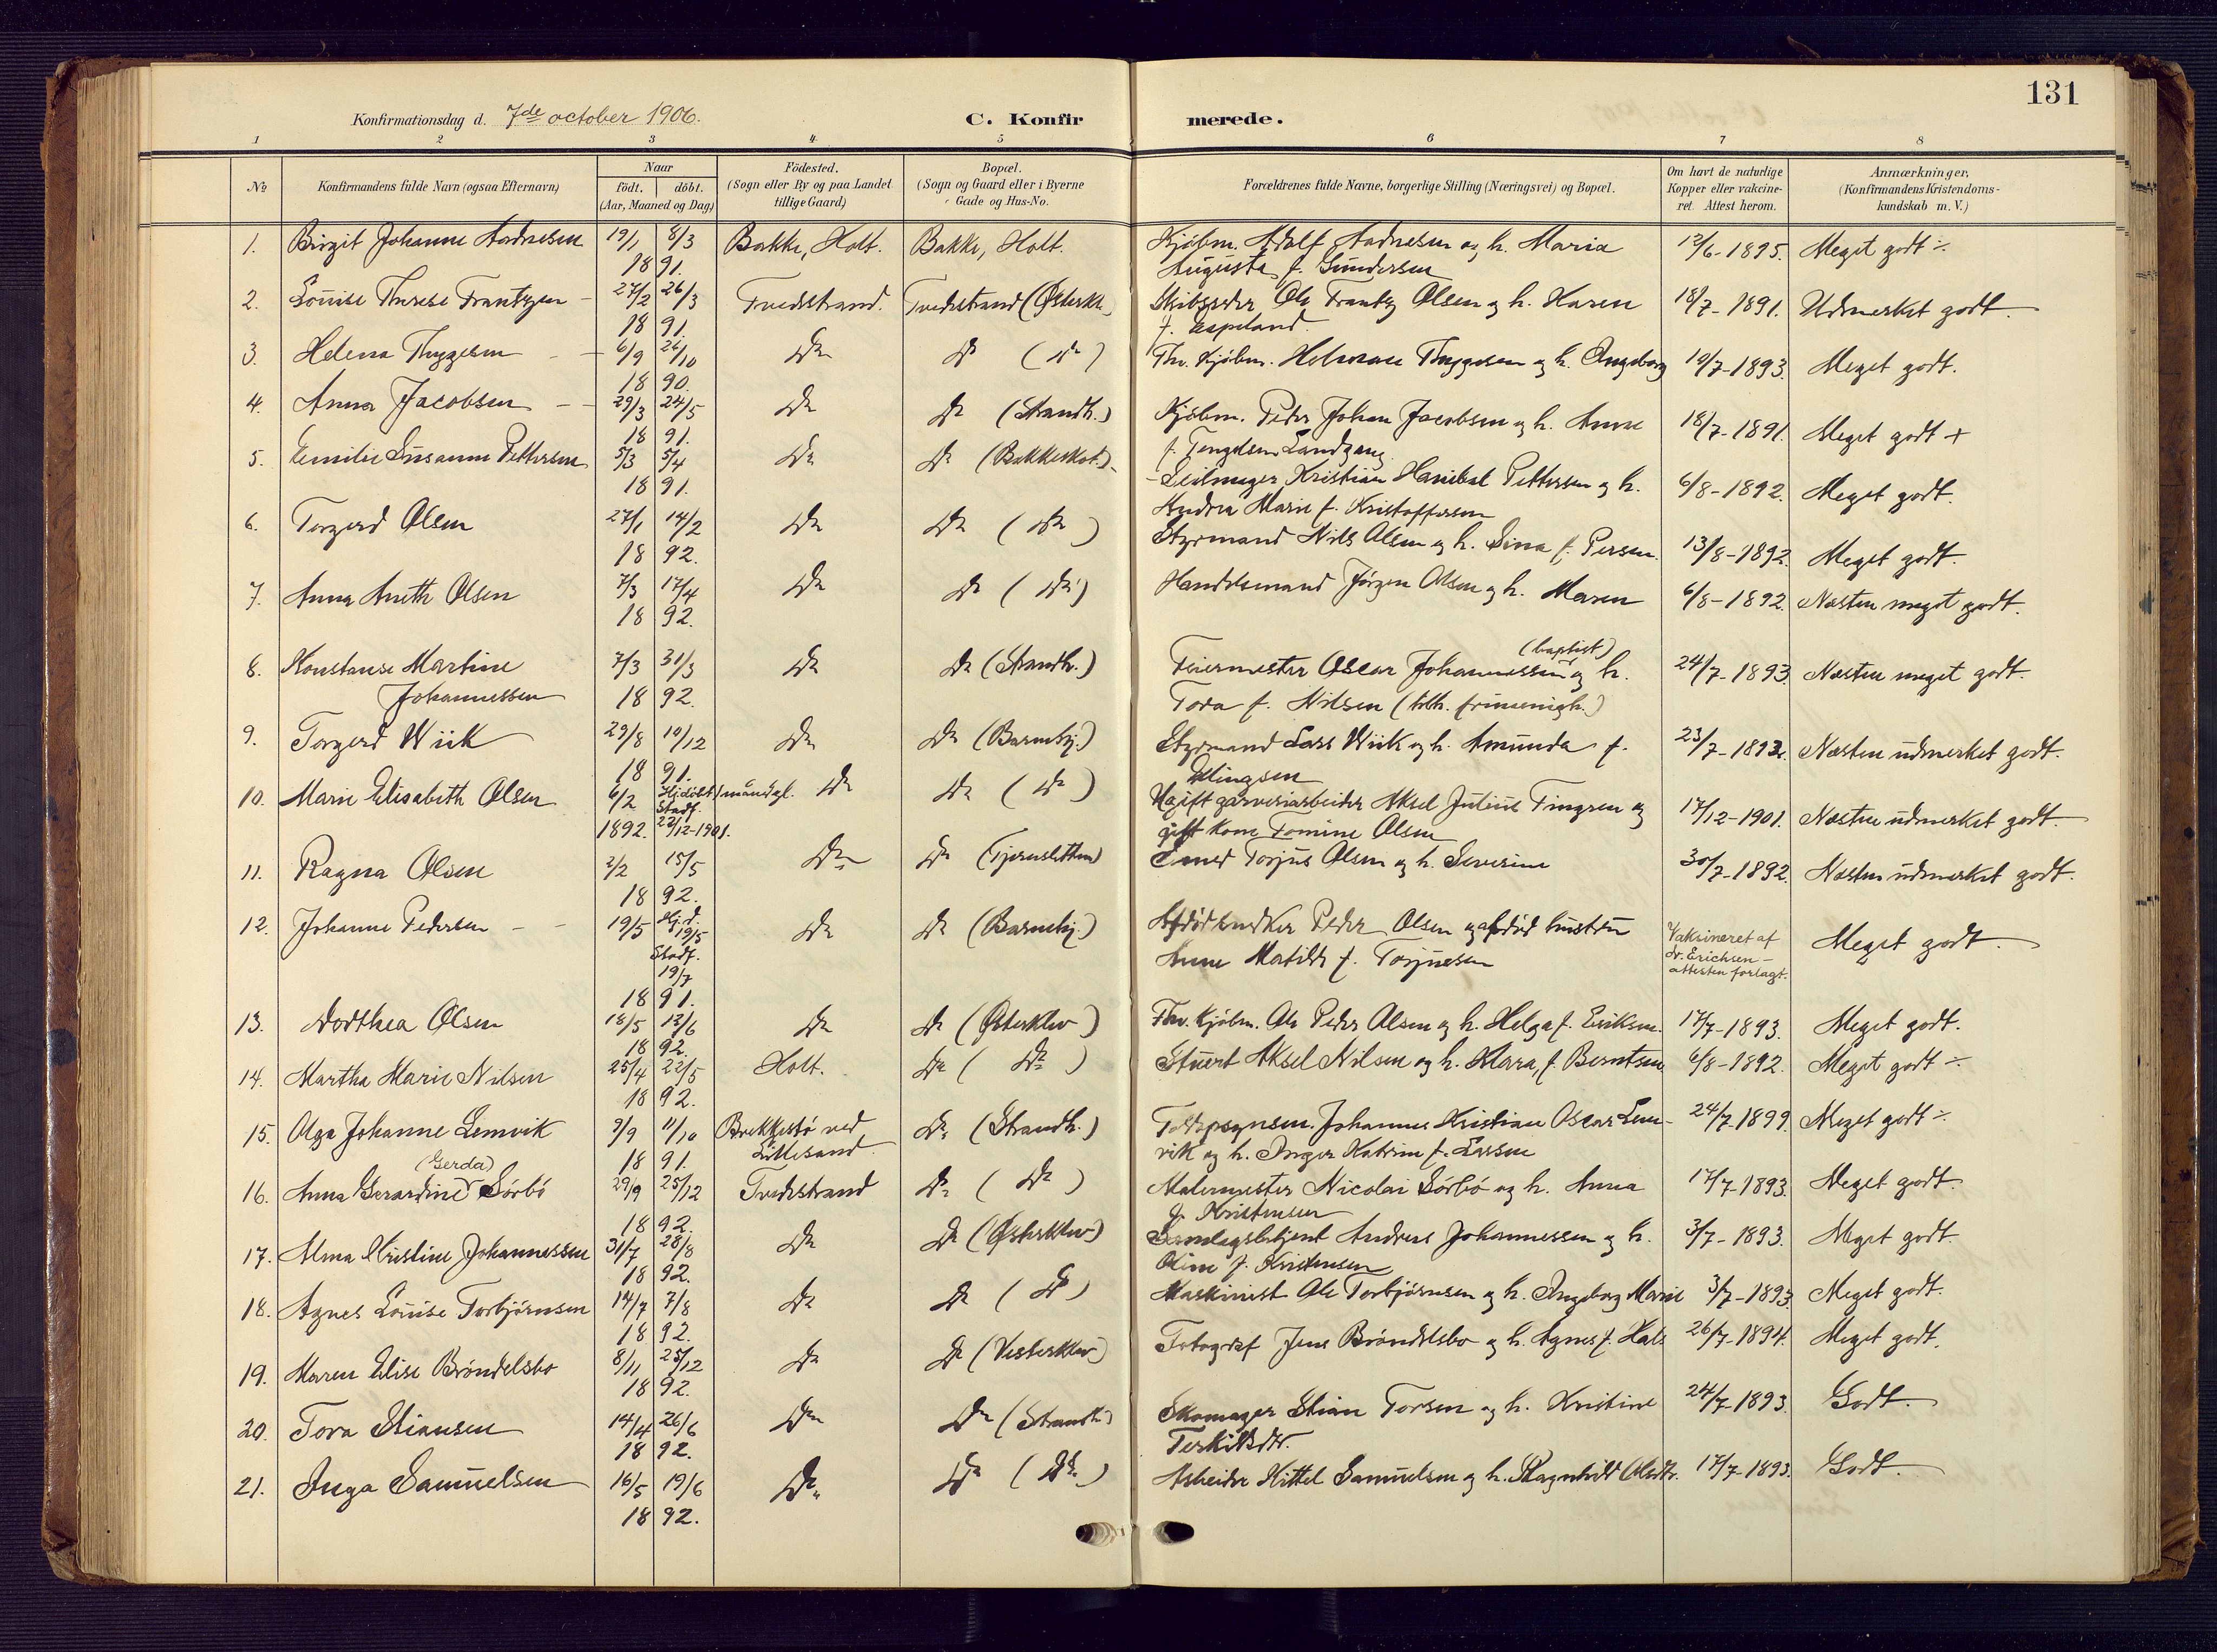 131
Konfirmationsdag d. 7de october 1906.
C. Konfirmerede.
1 2 3 4 5 6 7 8
№ Konfirmandens fulde Navn (ogsaa Efternavn) Naar födt. döbt. (Aar, Maaned og Dag) Födested. (Sogn eller By og paa Landet tillige Gaard) Bopæl. (Sogn og Gaard eller i Byerne Gade og Hus-No. Forældrenes fulde Navne, borgerlige Stilling (Næringsvei) og Bopæl. Om havt de naturlige Kopper eller vakcineret. Attest herom. Anmærkninger. (Konfirmandens Kristendomskundskab m. V.)
1. Birgit Johanne Aadnesen 19/1 8/3 Bakke, Holt. Bakke, Holt. Kjöbm. Adolf Aadnesen og h. Maria 12/6-1895. Meget godt ÷
1891. Augusta f. Gundersen
2. Louise Therese Frantzen 27/2 26/3 Tvedestrand. Tvedestrand (Østerkl.) Skibsreder Ole Frantz Olsen og h. Karen 18/7-1891. Udmerket godt.
1891. f. Espeland.
3. Helena Thygesen 6/9 26/10 Do Do (Do) Fhv. Kjöbm. Helman Thygesen og h. Ingeborg 10/7-1893. Meget godt.
1890.
4. Anna Jacobsen 29/3 24/5 Do Do (Strandh.) Kjöbm. Peder Johan Jacobsen og h. Anne 18/7-1891. Meget godt +
1891. f. Tengelsen Landgang
5. Emilie Susanne Pettersen 5/3 5/4 Do Do (Bakkeskot.) Seilmager Kristian Hanibal Pettersen og h. 6/8-1892. Meget godt.
1891. Andrea Marie f. Kristoffersen
6. Torgerd Olsen 27/1 14/2 Do Do (Do) Styrmand Nils Olsen og h. Sina f. Persen. 13/8-1892. Meget godt.
1892.
7. Anna Aneth Olsen 7/3 17/4 Do Do (Do) Handelsmand Jörgen Olsen og h. Maren 6/8-1892. Næsten meget godt.
1892.
8. Konstanse Martine 7/3 31/3 Do Do (Strandh.) Feiermester Oscar Johannessen (baptist) og h. 24/7-1893. Næsten meget godt.
Johannessen 1892. Tora f. Nilsen (tilh. frimenigh.)
9. Torgerd Wiik 29/8 10/12 Do Do (Barneby.) Styrmand Lars Wiik og h. Amunda f. 23/7-1892. Næsten udmerket godt.
1891. Ellingsen
10. Marie Elisabeth Olsen 6/2 Hjdöbt Do Do (Do) Ugift garveriarbeider Aksel Julius Tingsen og 17/12-1901. Næsten udmerket godt.
1892. Stadf. 22/12-1901. gift kone Tomine Olsen
11. Ragna Olsen 2/2 15/5 Do Do (Tjennsletten) Smed Torjus Olsen og h. Severine 30/7-1892. Næsten udmerket godt.
1892.
12. Johanne Pedersen 19/5 Hj.d. 19/5 Do Do (Barneby.) Afdöd snedker Peder Olsen og afdöd hustru Vakcineret af dr. Erichsen - attesten forlagt. Meget godt.
Stadf. 19/7 Anne Matilde f. Torjusen
1891.
13. Dorthea Olsen 18/5 12/6 Do Do (Østerklev) Fhv. Kjöbm. Ole Peder Olsen og h. Helga f. Eriksen. 17/7-1893. Meget godt.
1892.
14. Martha Marie Nilsen 25/4 22/5 Holt. Do (Do) Stuert Aksel Nilsen og h. Klara, f. Berntsen 6/8-1892. Meget godt ÷
1892.
15. Olga Johanne Lemvik 9/9 11/10 Brekkestö ved Do (Strandh.) Toldopsynsm. Johannes Kristian Oscar Lem- 24/7-1899. Meget godt ÷
1891. Lillesand. vik og h. Inger Katrine f. Larsen
(Gerda)
16. Anna Gerardine Sörbö 29/9 25/12 Tvedestrand Do (Do) Malermester Nicolai Sörbö og h. Anna 17/7-1893. Meget godt.
1892. f. Kristensen
17. Alma Kristine Johannessen 31/7 28/8 Do Do (Østerklev) Samlagsbetjent Andreas Johannessen og h. 3/7-1893. Meget godt.
1892. Oline f. Kristensen
18. Agnes Louise Torbjörnsen 14/7 7/8 Do Do (Do) Maskinist Ole Torbjörnsen og h. Ingeborg Marie 3/7-1893. Meget godt.
1892.
19. Maren Elise Bröndelsbo 8/11 25/12 Do Do (Vesterklev) Fotograf Jens Bröndelsbo og h. Agnes f. Hals 26/7-1894. Meget godt.
1892.
20. Tora Stiansen 14/4 26/6 Do Do (Strandh.) Skomager Stian Torsen og h. Kristine 24/7-1893. Godt.
1892. Terkildsdtr.
21. Inga Samuelsen 16/5 19/6 Do Do (Do) Arbeider Kittel Samuelsen og h. Ragnhild Olsdtr. 17/7-1893. Godt.
1892.